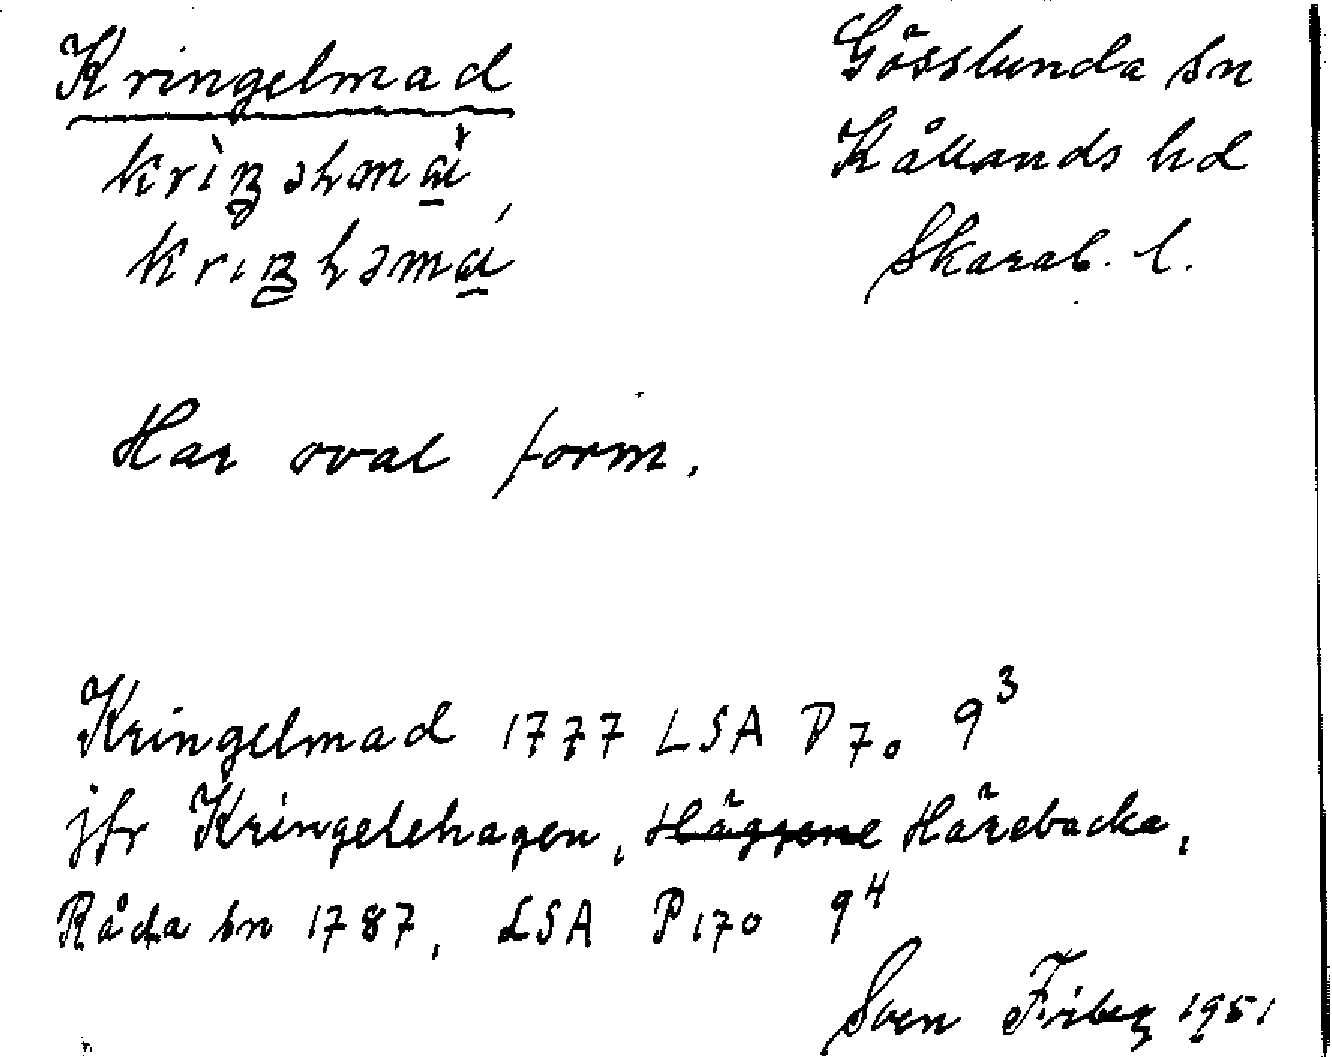 Kringelmad
Gösslunda sn
Kållands hd
Skarab. l.
Har oval form.
Kringelmad 1777 LSA P 70 9³
jfr Kringelehagen, Häggene Härebacka,
Råda sn 1787, LSA P 170 9⁴
Sven Friberg 1951